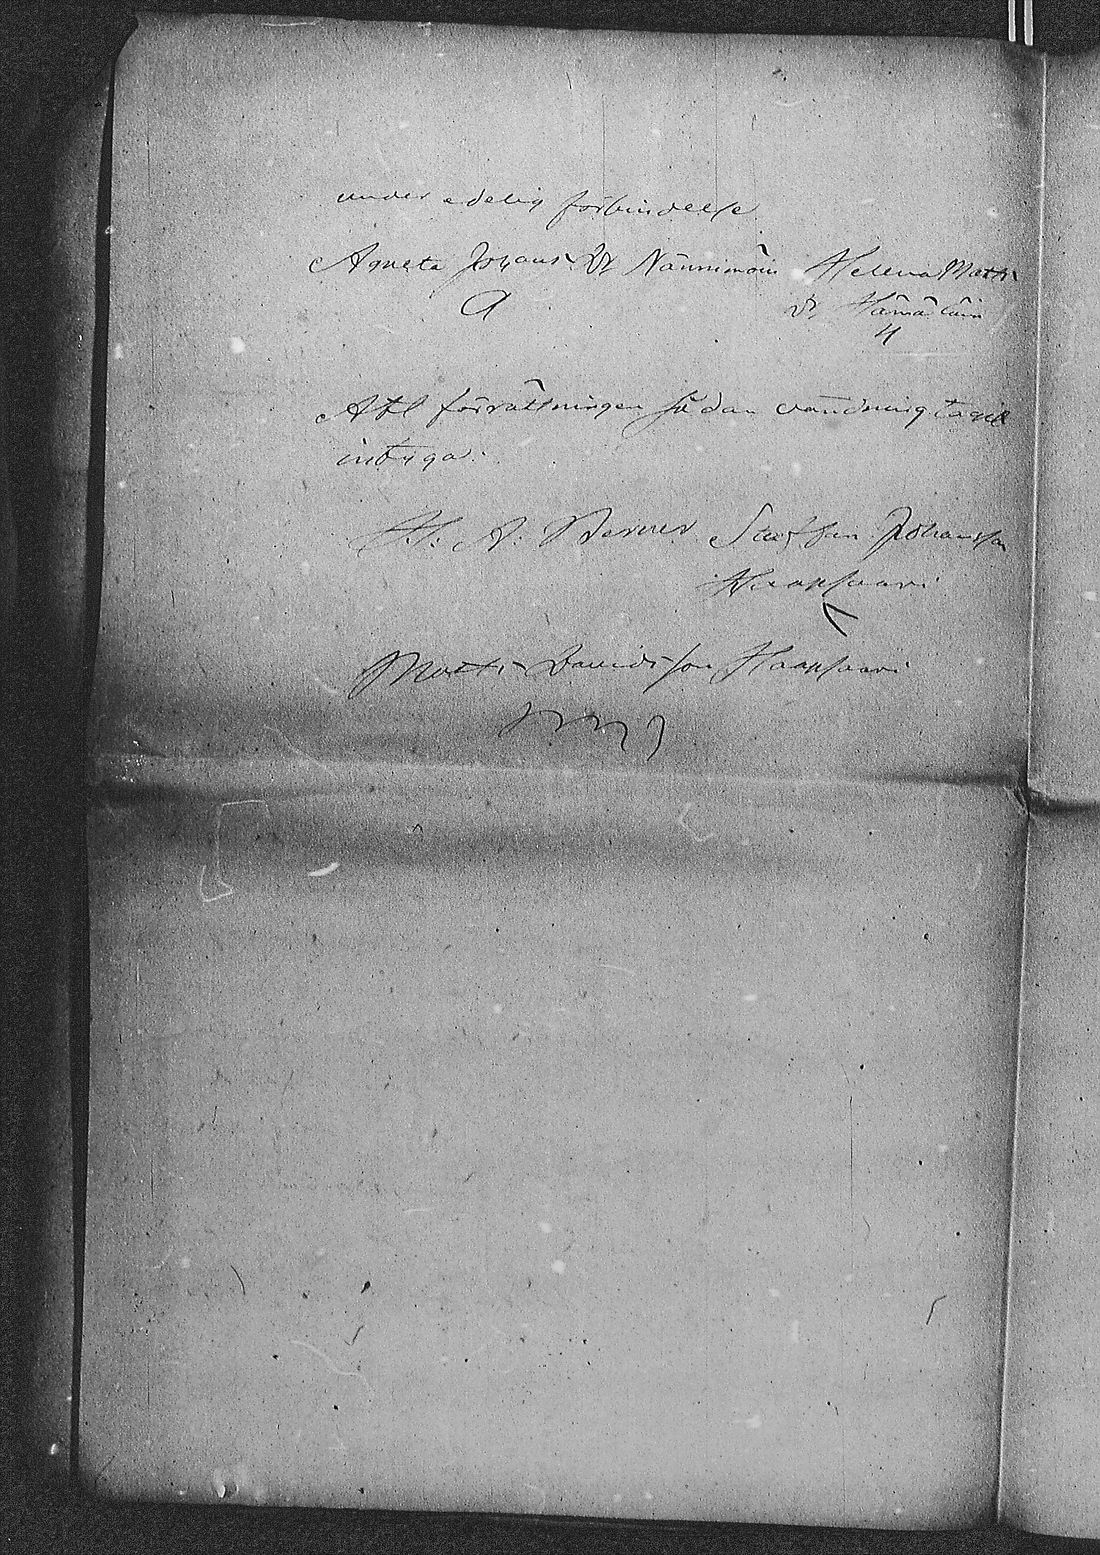 under edelig förbindelse
Agneta Johans Dr Nännimäin Helena Matts
A Dr Hämäläin
H
Att förrättningen sådan vändning tagit
intyga.
A: Berner Staffan Johansson
Haapsaari
Matts Davidsson Haapsaari